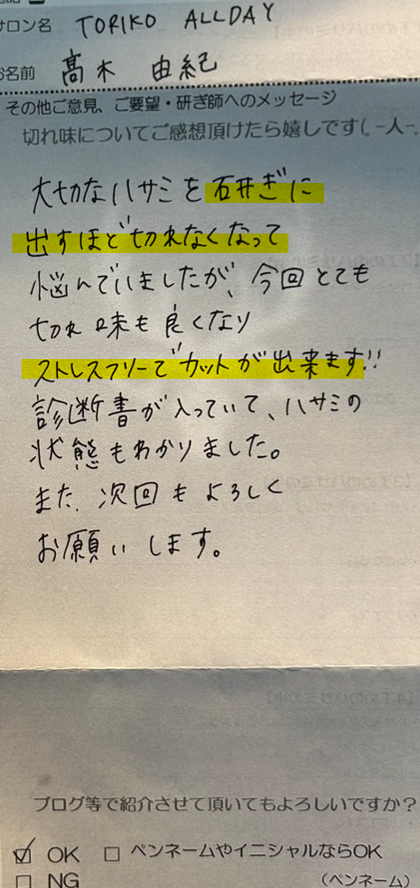 サロン名 TORIKO ALLDAY
お名前 髙木 由紀
その他ご意見、ご要望・研ぎ師へのメッセージ
切れ味についてご感想頂けたら嬉しです(_-人-_
大切なハサミを研ぎに
出すほど切れなくなって
悩んでいましたが、今回とても
切れ味も良くなり
ストレスフリーでカットが出来ます!!
診断書が入っていて、ハサミの
状態もわかりました。
また、次回もよろしく
お願いします。
ブログ等で紹介させて頂いてもよろしいですか?
☑ OK □ ペンネームやイニシャルならOK
□ NG (ペンネーム)